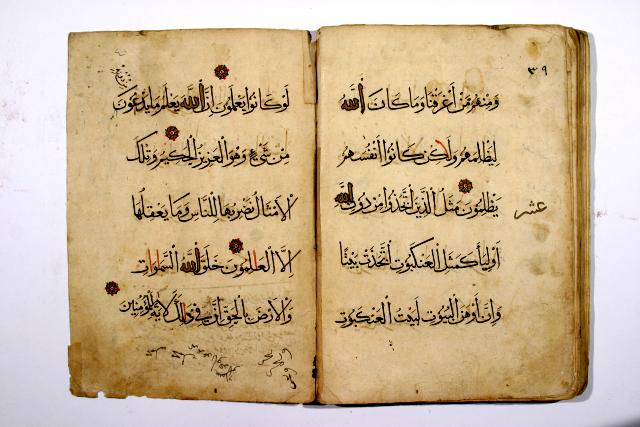 ٣٩
ومنهم من أغرقنا وما كان الله
ليظلمهم ولكن كانوا أنفسهم
يظلمون مثل الذين اتخذوا من دون الله
عشر
أوليا كمثل العنكبوت اتخذت بيتا
وإن أوهن البيوت لبيت العنكبوت
لو كانوا يعلمون إن الله يعلم ما يدعون
من شيء وهو العزيز الحكيم وتلك
الأمثال نضربها للناس وما يعقلها
إلا العالمون خلق الله السماوات
والأرض بالحق إن في ذلك لآية للمؤمنين